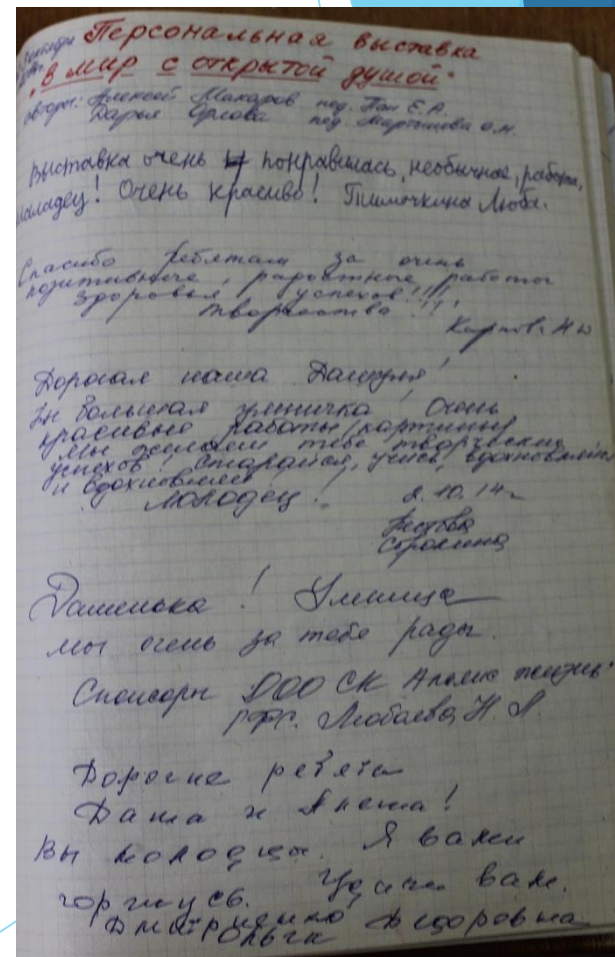 октября Персональная выставка
"В мир с открытой душой"
авторы: Алексей Макаров пед. Пак Е.А.
Дарья Орлова пед. Мартышева О.Н.
Выставка очень понравилась, необычная, работа,
молодец! Очень красиво! Тимочкина Люба.
Спасибо ребятам за очень
позитивные, радостные работы
Здоровья, успехов!!!
творчества!!!!
Дорогая наша Дашуля!
Ты большая умничка! Очень
красивые работы, картины
Мы желаем тебе творческих
успехов! Старайся, учись, вдохновляйся
и вдохновляй
Молодец! 2.10.14г
Сорокина
Дашенька! Умница
мы очень за тебя рады.
Спонсоры ООО СК
Любаева Н.А.
Дорогие ребята
Даша и Алеша!
Вы молодцы. Я вами
горжусь. Удачи вам.
Дмитриенко Федоровна
Ольга